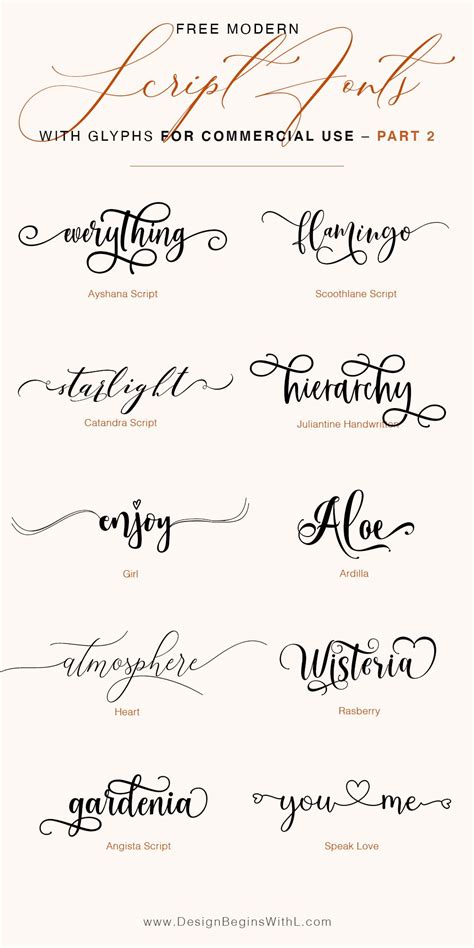 FREE MODERN
Script Fonts
WITH GLYPHS FOR COMMERCIAL USE – PART 2
everything flamingo
Ayshana Script Scoothlane Script
starlight hierarchy
Catandra Script Juliantine Handwritten
enjoy Aloe
Girl Ardilla
atmosphere Wisteria
Heart Rasberry
gardenia you me
Angista Script Speak Love
www.DesignBeginsWithL.com